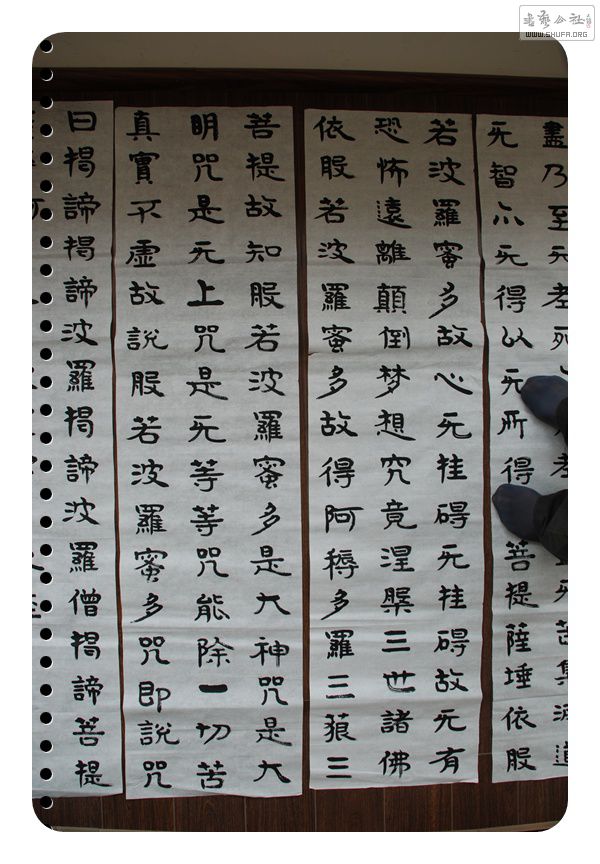 書藝公社
WWW.SHUFA.ORG
盡乃至无老死老无苦集滅道
无智亦无得以无所得菩提薩埵依般
若波羅蜜多故心无挂碍无挂碍故无有
恐怖遠離顛倒梦想究竟涅槃三世諸佛
依般若波羅蜜多故得阿耨多羅三藐三
菩提故知般若波羅蜜多是大神咒是大
明咒是无上咒是无等等咒能除一切苦
真實不虛故說般若波羅蜜多咒即說咒
曰揭諦揭諦波羅揭諦波羅僧揭諦菩提